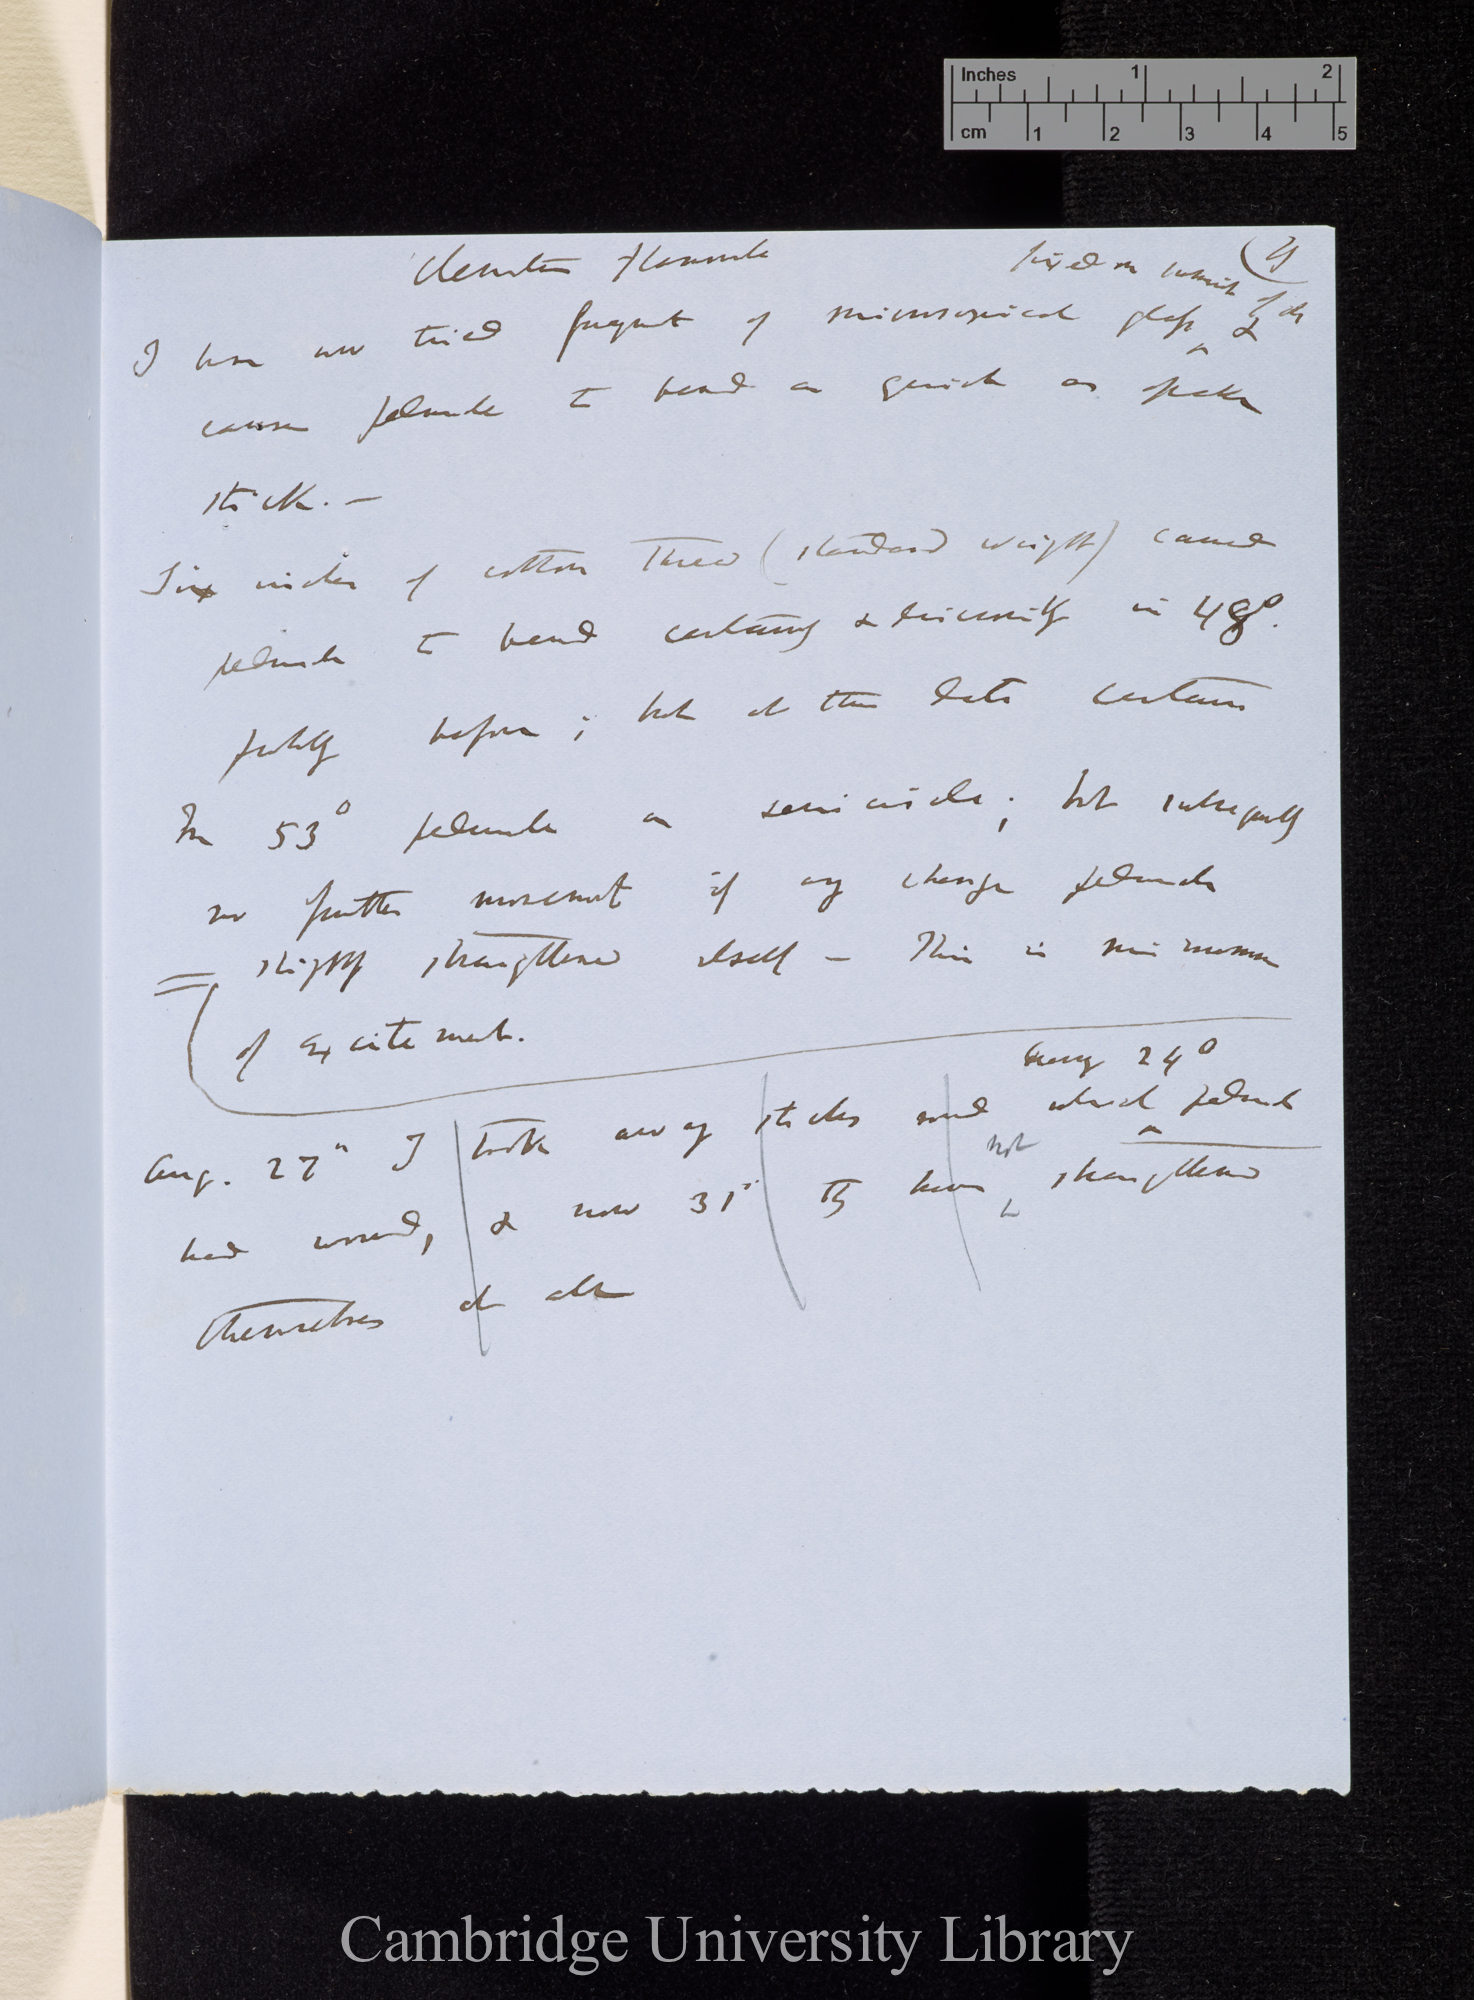 Inches 1 2
cm 1 2 3 4 5
Clematis flammula
(4
fixed on
I have now tried fragment of microscopical glass ^ &
causes peduncle to bend as quick as
stick. —
Six inches of cotton thread (standard weight) caused
peduncle to bend certainly & in 48°.
before; but at this date certain
In 53° peduncle a semicircle; but subsequently
no further movement if any change peduncle
slightly straightened itself — This is minimum
of excitement.
during 24°
Aug. 27" I took away sticks round which ^ peduncle
not
had wound, & now 31" they have ^ straightened
themselves at all
Cambridge University Library